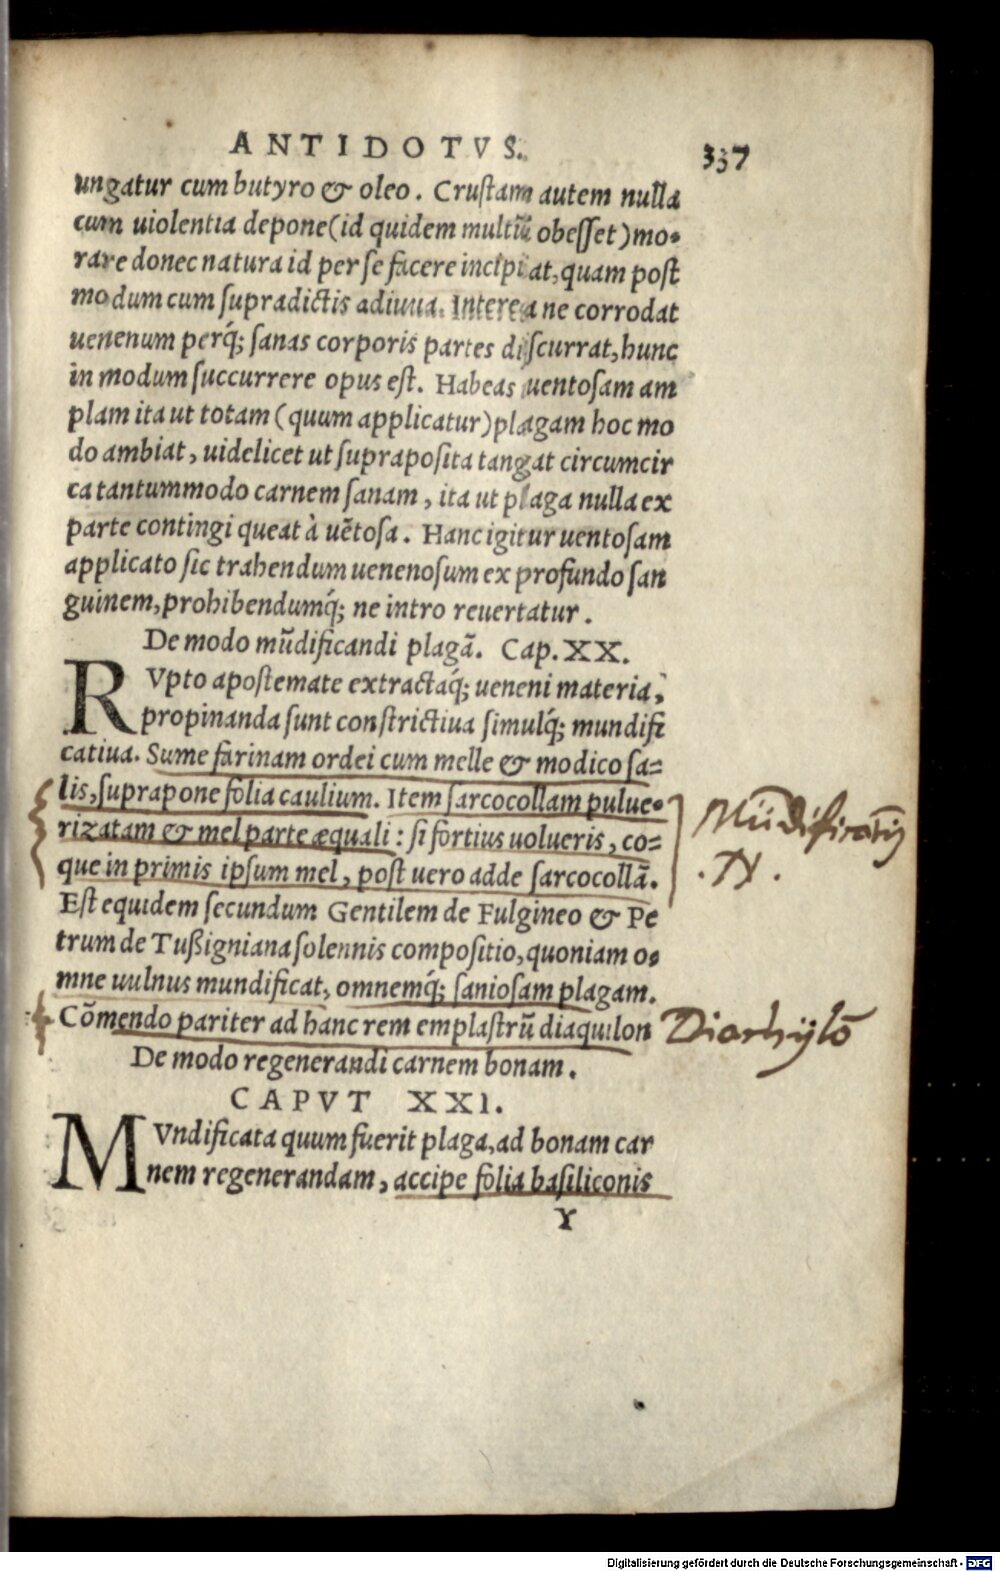 ANTIDOTVS. 337
ungatur cum butyro & oleo. Crustam autem nulla
cum uiolentia depone (id quidem multũ obesset) mo-
rare donec natura id per se facere incipiat, quam post
modum cum supradictis adiuua. Interea ne corrodat
uenenum perq́; sanas corporis partes discurrat, hunc
in modum succurrere opus est. Habeas uentosam am
plam ita ut totam (quum applicatur) plagam hoc mo
do ambiat, uidelicet ut supraposita tangat circumcir
ca tantummodo carnem sanam, ita ut plaga nulla ex
parte contingi queat à uẽtosa. Hanc igitur uentosam
applicato sic trahendum uenenosum ex profundo san
guinem, prohibendumq́; ne intro reuertatur.
De modo mũdificandi plagã. Cap. XX.
RVpto apostemate extractaq́; ueneni materia,
propinanda sunt constrictiua simulq́; mundifi
catiua. Sume farinam ordei cum melle & modico sa=
lis, suprapone folia caulium. Item sarcocollam pulue-
rizatam & mel parte æquali: si fortius uolueris, co=
que in primis ipsum mel, post uero adde sarcocollã.
Est equidem secundum Gentilem de Fulgineo & Pe
trum de Tußigniana solennis compositio, quoniam o-
mne uulnus mundificat, omnemq́; saniosam plagam.
Cõmendo pariter ad hanc rem emplastrũ diaquilon
Diachylõ
De modo regenerandi carnem bonam.
CAPVT XXI.
MVndificata quum fuerit plaga, ad bonam car
nem regenerandam, accipe folia basiliconis
Y
Digitalisierung gefördert durch die Deutsche Forschungsgemeinschaft - DFG